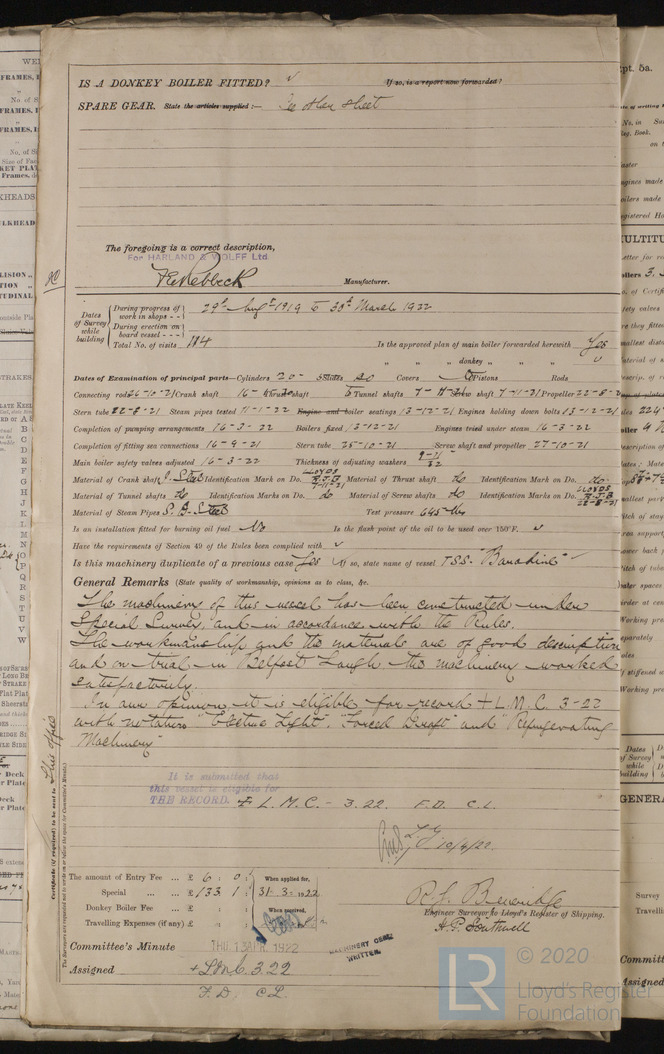 IS A DONKEY BOILER FITTED? ✓ If so, is a report now forwarded?
SPARE GEAR. State the articles supplied:— See other sheet
The foregoing is a correct description,
For HARLAND & WOLFF Ltd
Manufacturer.
Dates of Survey while building
During progress of work in shops - - 29th Augt 1919 to 30th March 1922
During erection on board vessel - - -
Total No. of visits 184
Is the approved plan of main boiler forwarded herewith Yes
" " " donkey " " " ✓
Dates of Examination of principal parts—Cylinders 20- Slides do Covers Pistons Rods
Connecting rods 26-10-21 Crank shaft 16- Thrust shaft Tunnel shafts 7-11-21 Screw shaft 7-11-21 Propeller 22-8-21
Stern tube 22-8-21 Steam pipes tested 11-1-22 Engine and boiler seatings 13-12-21 Engines holding down bolts 13-12-21
Completion of pumping arrangements 16-3-22 Boilers fixed 13-12-21 Engines tried under steam 16-3-22
Completion of fitting sea connections 16-9-21 Stern tube 25-10-21 Screw shaft and propeller 27-10-21
Main boiler safety valves adjusted 16-3-22 Thickness of adjusting washers 9-11/32
Material of Crank shaft I. Steel Identification Mark on Do. LLOYDS R.J.B 7-11-21 Material of Thrust shaft do Identification Mark on Do. do
Material of Tunnel shafts do Identification Marks on Do. do Material of Screw shafts do Identification Marks on Do. LLOYDS R.J.B 22-8-21
Material of Steam Pipes S.D. Steel Test pressure 645 lbs
Is an installation fitted for burning oil fuel No Is the flash point of the oil to be used over 150°F. ✓
Have the requirements of Section 49 of the Rules been complied with ✓
Is this machinery duplicate of a previous case Yes If so, state name of vessel TSS. "Baradine"
General Remarks (State quality of workmanship, opinions as to class, &c.
The machinery of this vessel has been constructed under
Special Survey and in accordance with the Rules.
The workmanship and the materials are of good description
and on trial in Belfast Lough the machinery worked
satisfactorily.
In our opinion it is eligible for record + L.M.C. 3-22
with notation "Electric Light". "Forced Draft" and "Refrigerating
Machinery"
It is submitted that
this vessel is eligible for
THE RECORD. + L.M.C. - 3.22. F.D. C.L.
10/4/22.
The amount of Entry Fee ... £ 6 : 0 : When applied for,
Special ... ... £ 133 : 1 : 31-3-1922
Donkey Boiler Fee ... £ : : When received,
Travelling Expenses (if any) £ : :
R. J. Beveridge
Engineer Surveyor to Lloyd's Register of Shipping.
H. P. Southwell
Committee's Minute THU. 13 APR. 1922
MACHINERY CERT. WRITTEN.
Assigned + L.M.C. 3.22
F.D. C.L.
Certificate (if required) to be sent to This office
(The Surveyors are requested not to write on or below the space for Committee's Minute.)
© 2020
LR
Lloyd's Register
Foundation